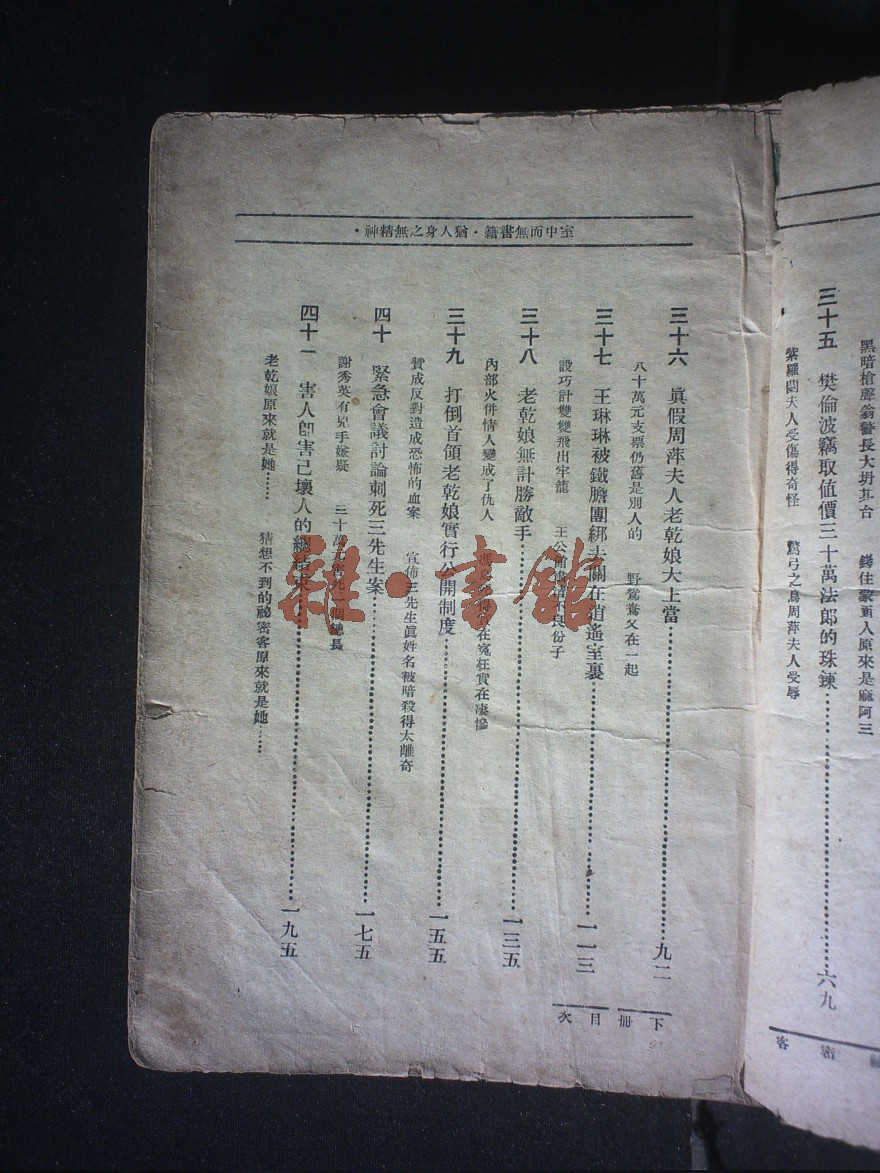 黑暗槍聲翁警長大坍其台 原來是麻阿三
三十五 樊倫波竊取値價三十萬法郎的珠鍊 六九
紫羅蘭夫人受傷得奇怪 驚弓之鳥周萍夫人受辱
密客
室中而無書籍・猶人身之無精神・
三十六 眞假周萍夫人老乾娘大上當 九二
八十萬元支票仍舊是別人的 野鴛鴦又在一起
三十七 王琳琳被鐵膽團綁去關在逍遙室裏 一一三
設巧計雙雙飛出牢籠 王公館 不良份子
三十八 老乾娘無計勝敵手 一三五
內部火併情人變成了仇人 在寃枉實在凄慘
三十九 打倒首領老乾娘實行公開制度 一五五
贊成反對造成恐怖的血案 宣佈三先生眞姓名被暗殺得太離奇
四十 緊急會議討論刺死三先生案 一七五
謝秀英有兇手嫌疑 三十萬元害死一個總長
四十一 害人卽害己壞人的總結束 一九五
老乾娘原來就是她…… 猜想不到的祕密客原來就是她……
下册目次
雜・書館